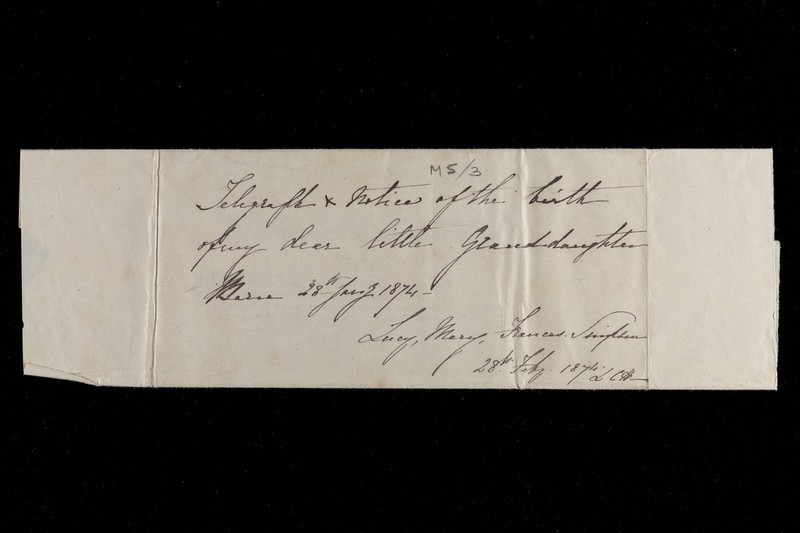 M5/3
Telegraph & Notice of the birth
of my dear little Grand daughter
Born 28th Jany 1874 -
Lucy, Mary, Frances.
28th Feby. 1874